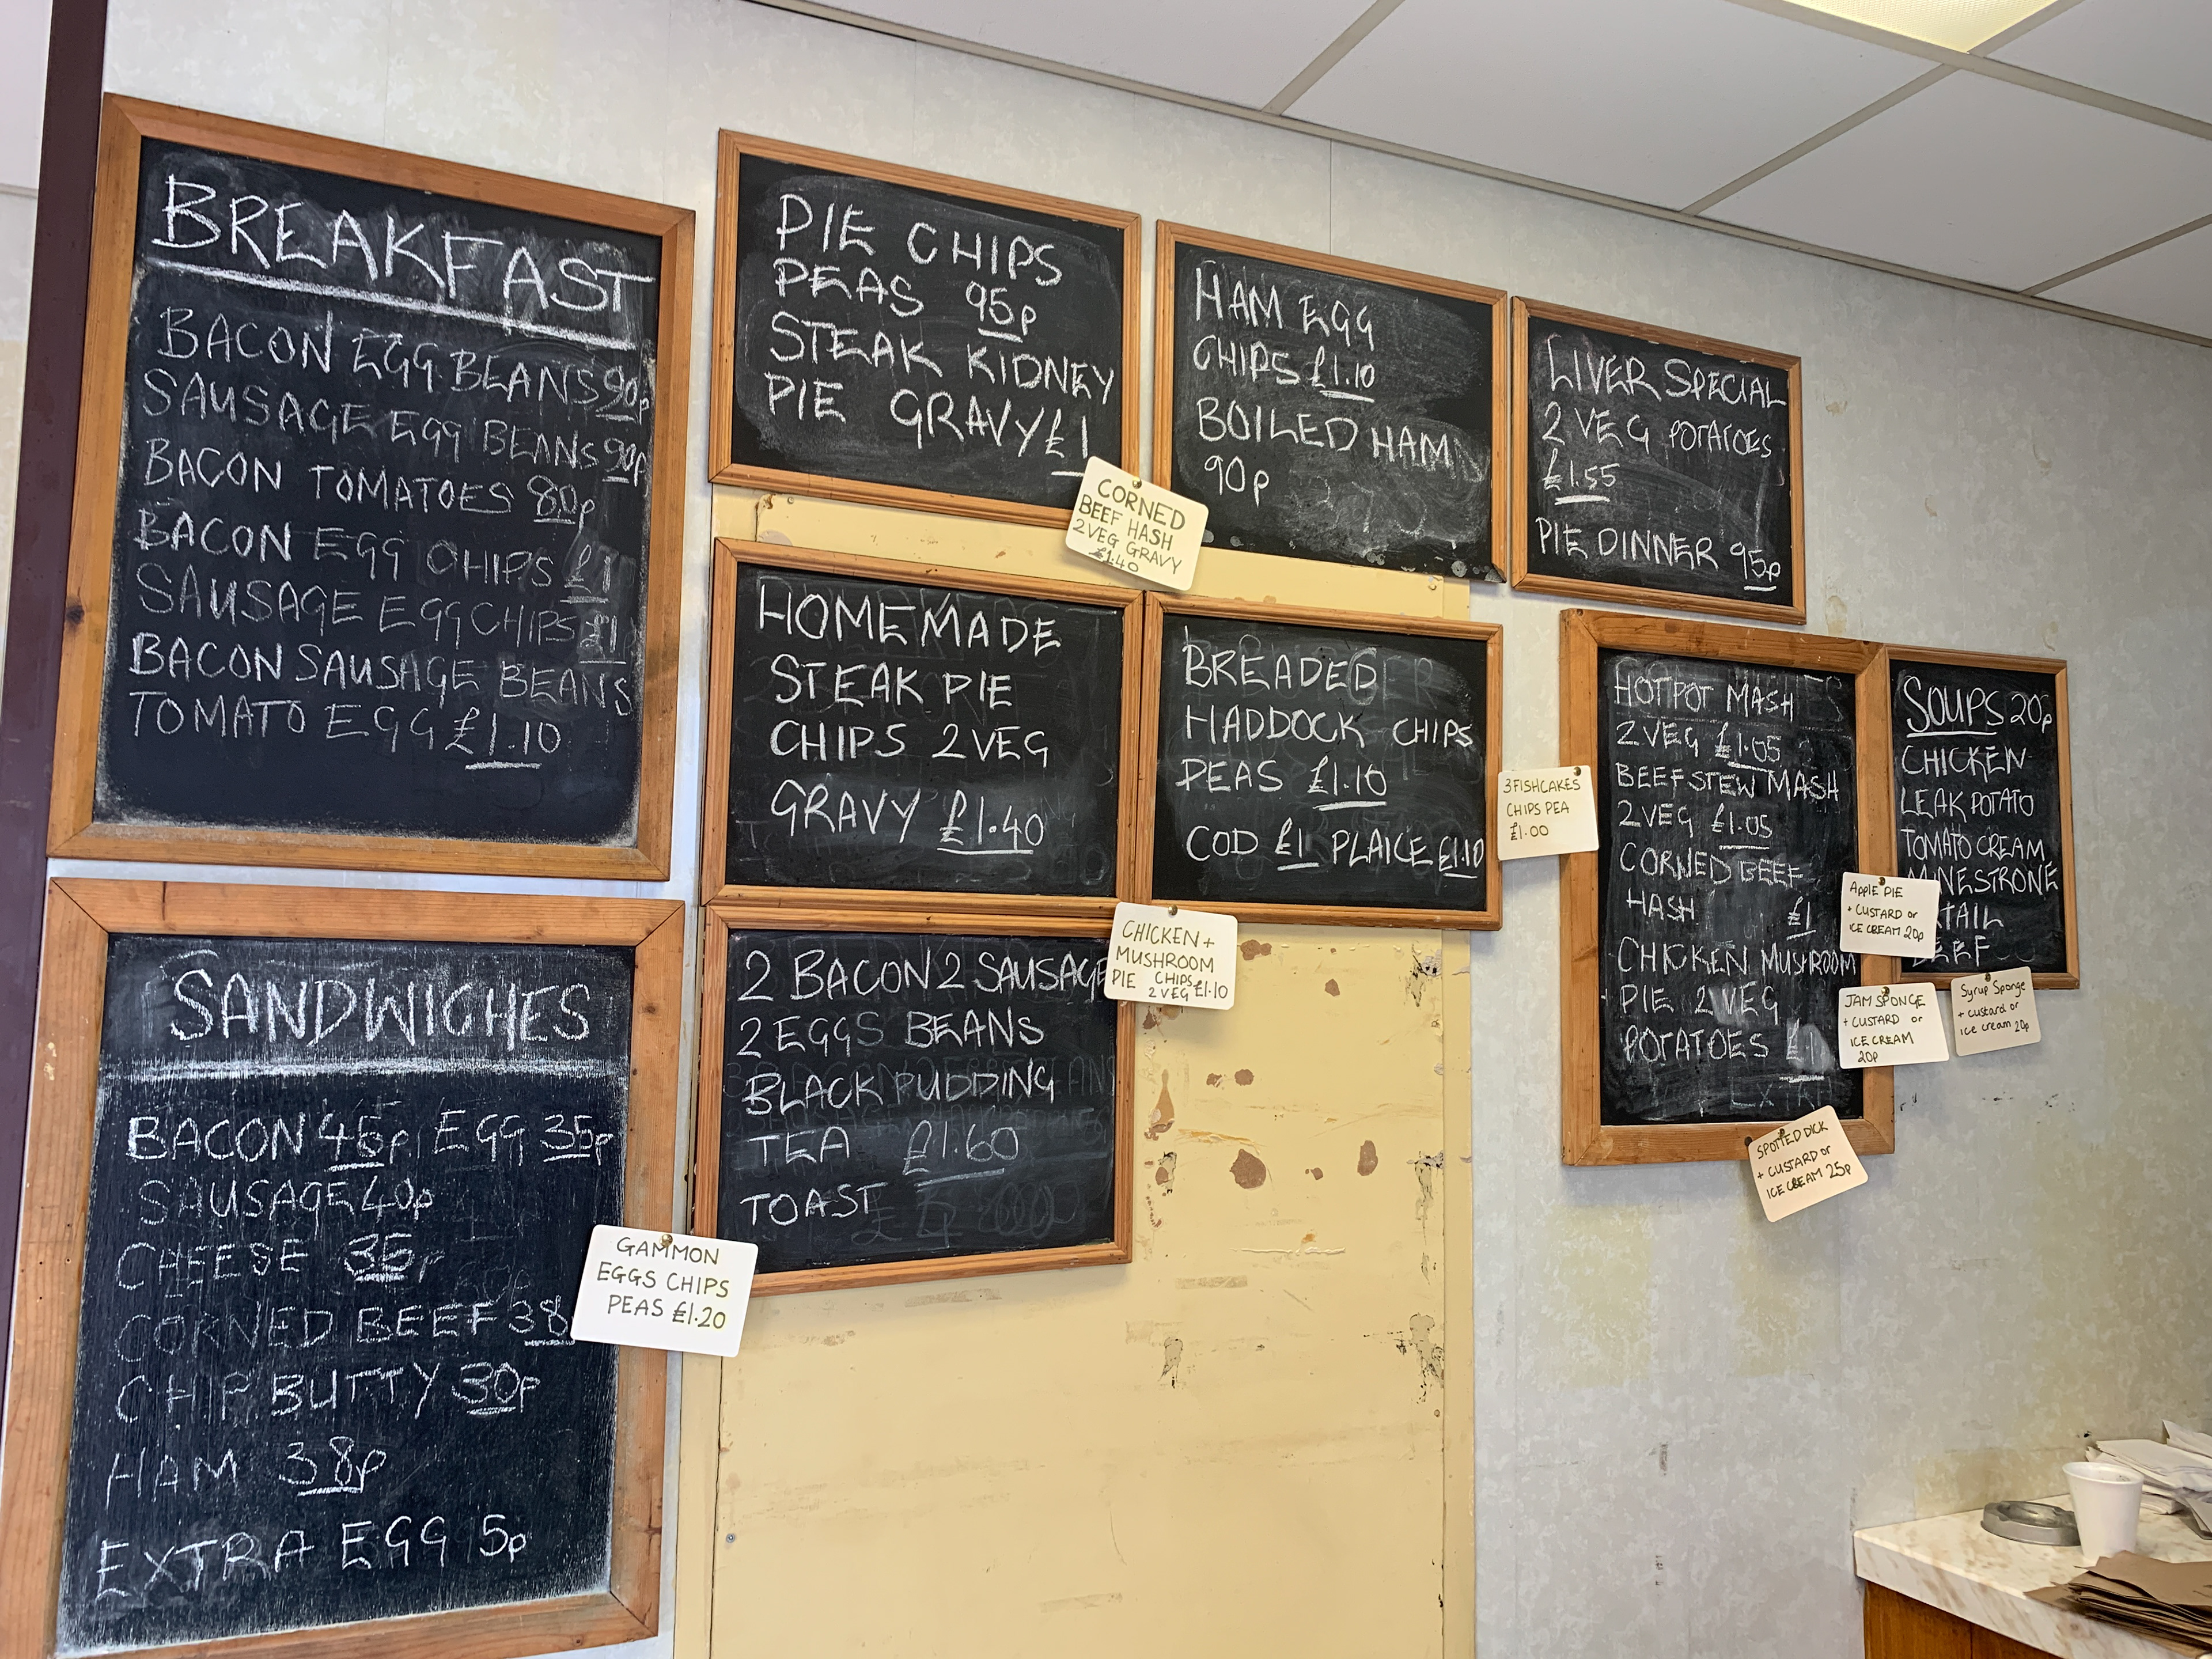 BREAKFAST
BACON EGG BEANS 90p
SAUSAGE EGG BEANS 90p
BACON TOMATOES 80p
BACON EGG CHIPS £1
SAUSAGE EGG CHIPS £1
BACON SAUSAGE BEANS
TOMATO EGG £1.10
SANDWICHES
BACON 45p EGG 35p
SAUSAGE 40p
CHEESE 35p
CORNED BEEF 38
CHIP BUTTY 30p
HAM 38p
EXTRA EGG 5p
GAMMON
EGGS CHIPS
PEAS £1.20
PIE CHIPS
PEAS 95p
STEAK KIDNEY
PIE GRAVY £1
CORNED
BEEF HASH
2 VEG GRAVY
£1.40
HAM EGG
CHIPS £1.10
BOILED HAM
90p
LIVER SPECIAL
2 VEG POTATOES
£1.55
PIE DINNER 95p
HOMEMADE
STEAK PIE
CHIPS 2 VEG
GRAVY £1.40
BREADED
HADDOCK CHIPS
PEAS £1.10
COD £1 PLAICE £1.10
3 FISHCAKES
CHIPS PEA
£1.00
2 BACON 2 SAUSAGE
2 EGGS BEANS
BLACK PUDDING
TEA £1.60
TOAST
CHICKEN +
MUSHROOM
PIE CHIPS
2 VEG £1.10
HOTPOT MASH
2 VEG £1.05
BEEF STEW MASH
2 VEG £1.05
CORNED BEEF
HASH £1
CHICKEN MUSHROOM
PIE 2 VEG
POTATOES £1
SOUPS 20p
CHICKEN
LEAK POTATO
TOMATO CREAM
MINESTRONE
TAIL
BEEF
APPLE PIE
+ CUSTARD or
ICE CREAM 20p
JAM SPONGE
+ CUSTARD or
ICE CREAM
20p
Syrup Sponge
+ custard or
ice cream 20p
SPOTTED DICK
+ CUSTARD or
ICE CREAM 25p